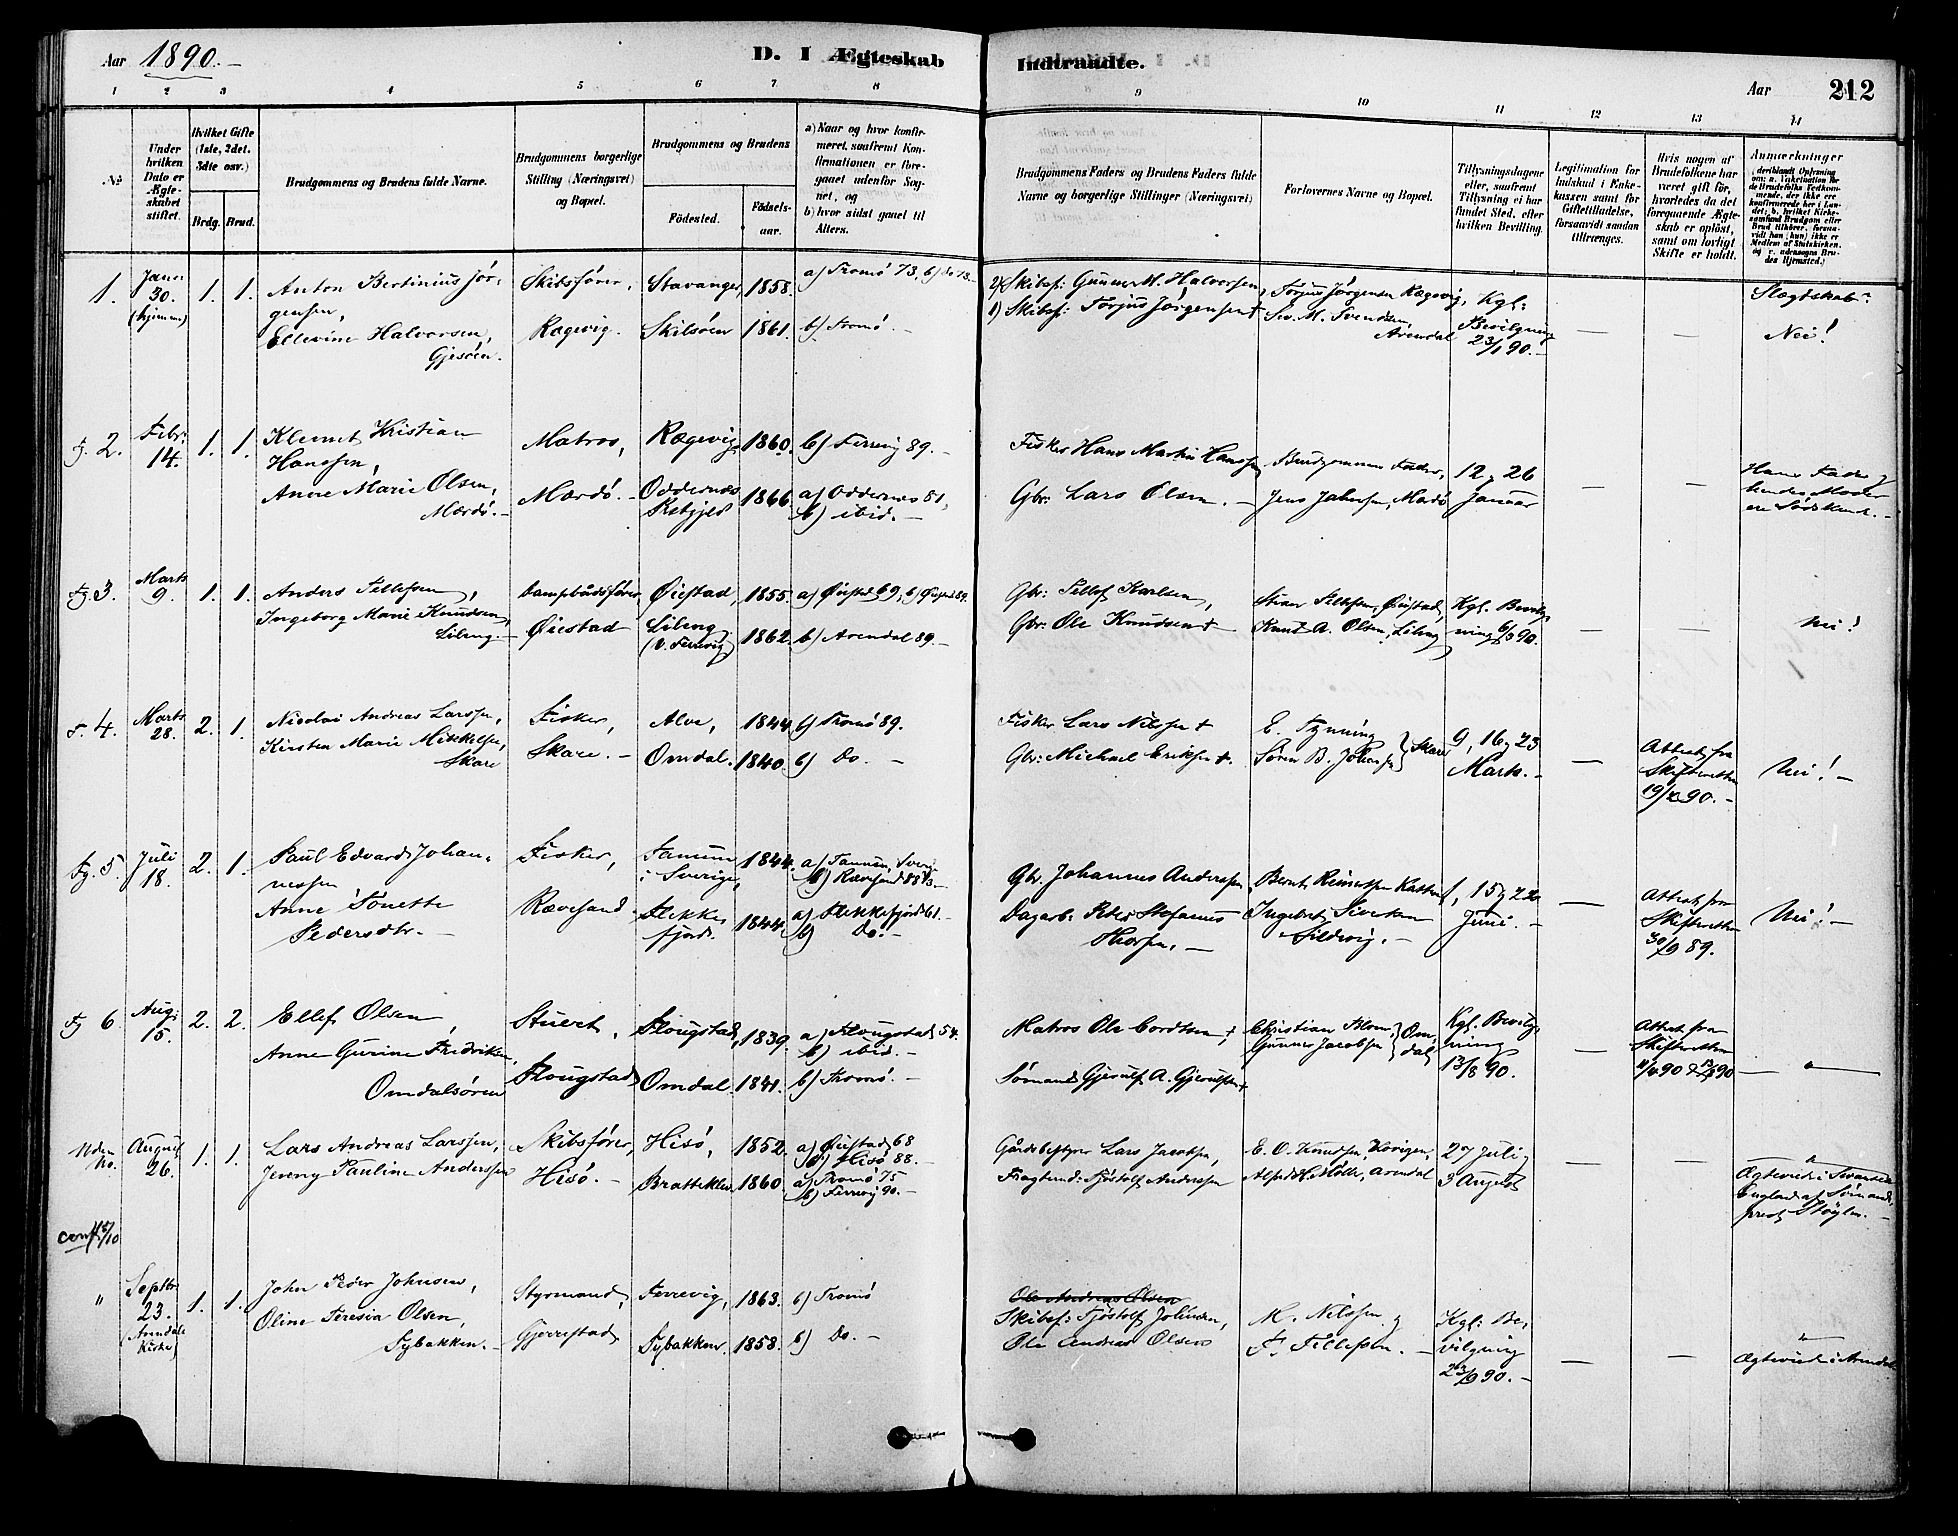 Aar 1890.-
D. I Ægteskab
Indtraadte.
Aar 212
1 2 3 4 5 6 7 8 9 10 11 12 13 14
№
Under hvilken Dato er Ægteskabet stiftet.
Hvilket Gifte (1ste, 2det, 3dte osv.)
Brdg. Brud.
Brudgommens og Brudens fulde Navne.
Brudgommens borgerlige Stilling (Næringsvei) og Bopæl.
Brudgommens og Brudens
Födested. Födselsaar.
a) Naar og hvor konfirmeret, saafremt Konfirmationen er foregaaet udenfor Sognet, og
b) hvor sidst gaaet til Alters.
Brudgommens Faders og Brudens Faders fulde Navne og borgerlige Stillinger (Næringsvei)
Forlovernes Navne og Bopæl.
Tillysningsdagene eller, saafremt Tillysning ei har fundet Sted, efter hvilken Bevilling.
Legitimation for Indskud i Enkekassen samt for Giftetilladelse, forsaavidt saadan tiltrænges.
Hvis nogen af Brudefolkene har været gift før, hvorledes da det foregaaende Ægteskab er opløst, samt om lovligt Skifte er holdt.
Anmærkninger
1. Janr 30. (hjemme) 1. 1.
Anton Bertinius Jörgensen,
Ellevine Halvorsen, Gjesöen.
Skibsförer, Rægevig.
Stavanger, 1858. a) Tromö 73, b) do 73.-
Skilsöen 1861. b) Tromö.-
2) Skibsf: Gunner M. Halvorsen,
1) Skibsf: Torjus Jörgensen +
Torjus Jörgensen Rægevig,
M. Svendsen Arendal
Kgl: Bevilgning 23/1 90.-
—
—
Slægtskab: Nei!
2. Febr: 14. 1. 1.
Klemet Kristian Hanssen,
Anne Marie Olsen, Mærdö.-
Matros, Mærdö.-
Rægevig 1860. b) Færvig 89.-
Oddernæs Prstgjeld 1866. a) Oddernes 81, b) ibid.-
Fisker Hans Martin Hanssen
Gbr: Lars Olsen.-
Brudgommens Fader,
Jens Jahnsen, Mærdö
12 og 26 Januar
—
—
Hans Fader og hendes Moder ere Södskende.-
3. Marts 9. 1. 1.
Anders Tellefsen,
Ingeborg Marie Knudsen, Lileng.-
Dampbaadsförer, Öiestad
Öiestad, 1855. a) Öiestad 69, b) Öiestad 89.
Lileng 1862. b) Arendal 89.-
Gbr: Tellef Karlsen,
Gbr: Ole Knudsen +
Tellefsen, Öiestad,
Knut A. Olsen, Lileng
Kgl. Bevilgning 6/3 90.
—
—
Nei!
4. Marts 28. 2. 1.
Nicolai Andreas Larssen,
Kirsten Marie Mikkelsen, Skare
Fisker, Skare.-
Alve, 1844. b) Tromö 89.
Omdal. 1840. b) Do.-
Fisker Lars Nilssen +
Gbr: Michael Eriksen +.
E. Tynning
Sören B. Johansen } Skare
9, 16 og 23 Marts.-
—
Attest fra Skifteretten 19/2 90.-
Nei!-
5. Juli 18. 2. 1.
Paul Edvard Johannessen
Anne Tönette Pedersdtr.-
Fisker, Rævesand.
Tanum i Sverige, 1844. a) Tanum, Sverige b) Rævesand 88.-
Flekkefjord. 1844. a) Flekkefjord 61.- b) Do.-
Gbr Johannes Anderssen
Dagarb. Peter Stefanus Thorsen.-
Bernt Reinertsen
Ingebret Sivertsen Sildevig.-
1, 15 og 22 Juni.-
—
Attest fra Skifteretten 30/9 89.
Nei!-
6 Aug: 15. 2. 2.
Ellef Olsen,
Anne Gurine Fredriksen, Omdalsören
Stuert, Flougstad
Flougstad, 1839. a) Flougstad 54. b) ibid.-
Omdal. 1841. b) Tromö.-
Matros Ole Cordtsen +
Sömand Gjerulf A. Gjerulfsen +
Christian Blom
Gunner Jacobsen } Omdal
Kgl. Bevilgning 13/8 90.
—
Attest fra Skifteretten
— " —
Uden No. August 26. 1. 1.
Lars Andreas Larssen,
Jenny Pauline Anderssen
Skibsförer, Hisö.-
Hisö, 1852. a) Öiestad 68 b) Hisö 88.-
Bratteklev 1860. a) Tromö 75 b) Færvig 90.-
Gårdsbestyrer Lars Jacobsen,
Tjöstolf Anderssen
E. O. Knudsen,
Alfred H. Möller, Arendal
27 Juli og 3 August
—
—
Ægteviede i Swansea England af Sömandsprest Stöylen.-
conf. 18/10
" Septbr 23. (Arendals Kirke) 1. 1.
John Peder Johnsen,
Oline Teresia Olsen, Tybakken.-
Styrmand, Gjerrestad
Færvig, 1863. b) Tromö
Tybakken. 1858. b) Do.-
Ole Andreas Olsen
Skibsf: Tjöstolf Johnsen,
Ole Andreas Olsen
M. Nilssen og
T. Tellefsen.-
Kgl: Bevilgning 90.-
—
—
"
Ægteviede i Arendal